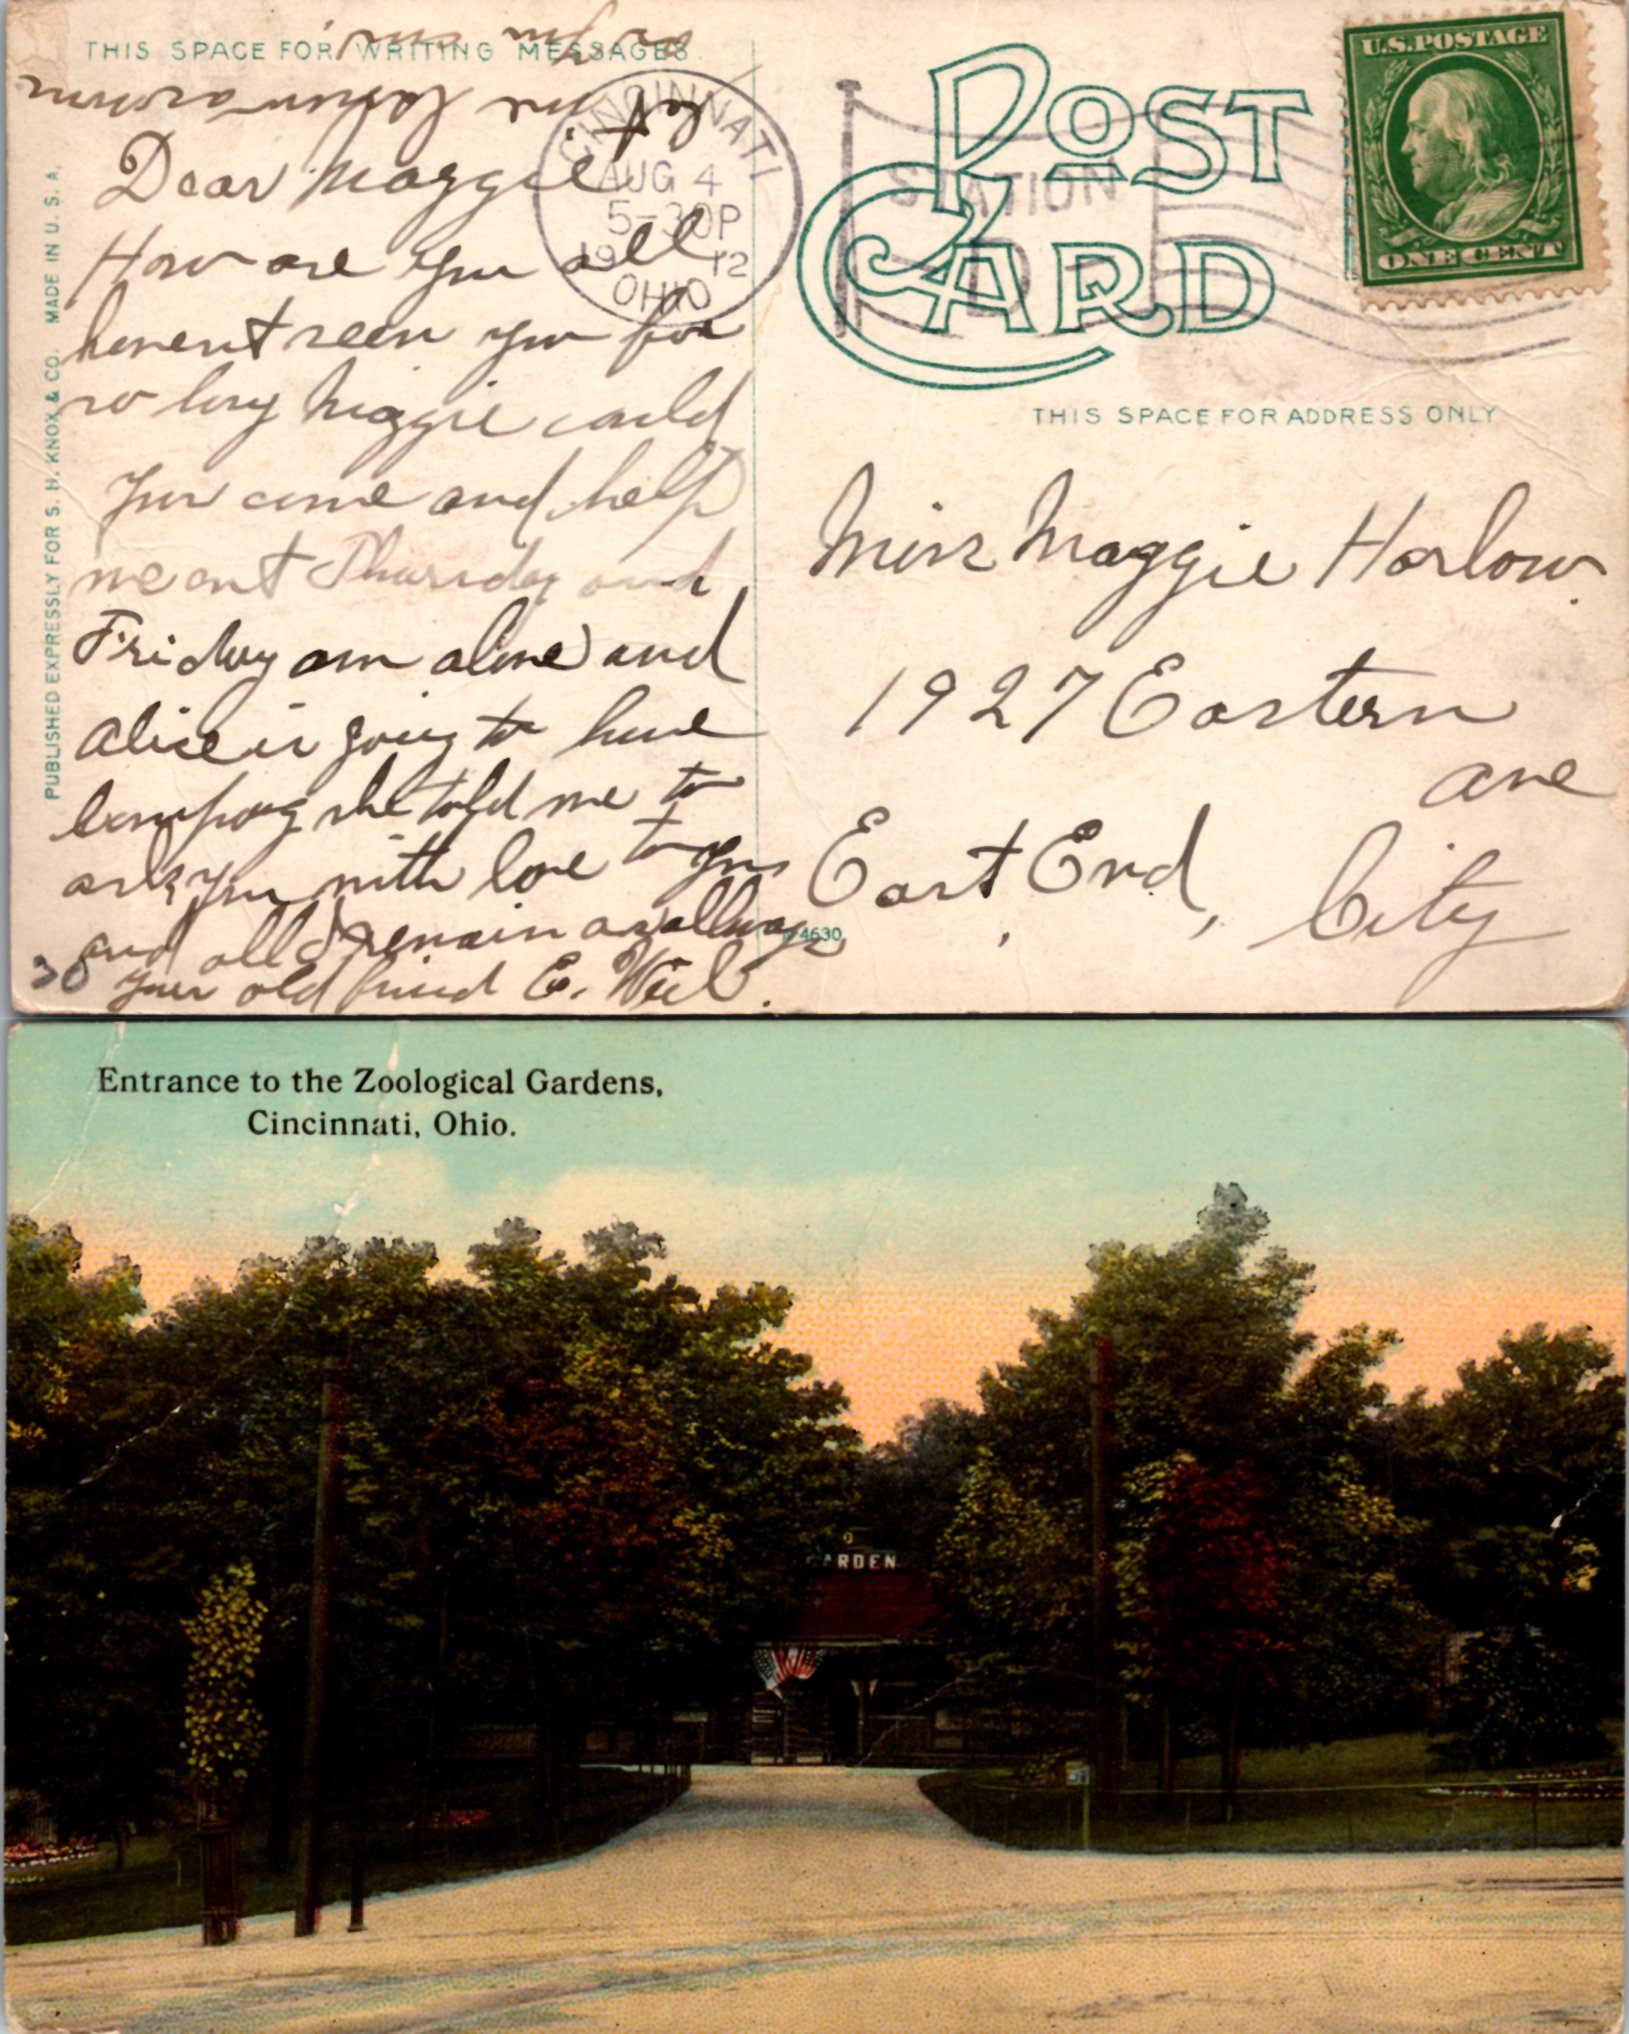 THIS SPACE FOR WRITING MESSAGES.
Dear Maggie
How are you all
havent seen you for
so long Maggie could
you come and help
me out Thursday and
Friday am alone and
Alice is going to have
company she told me to
ask you with love to you
and all I remain as allways
your old friend E. Weil.
let me
or if you can
30
PUBLISHED EXPRESSLY FOR S. H. KNOX & CO. MADE IN U. S. A.
CINCINNATI
AUG 4
5-30P
1912
OHIO
STATION
D
POST
CARD
U.S. POSTAGE
ONE CENT
THIS SPACE FOR ADDRESS ONLY
Miss Maggie Harlow.
1927 Eastern
ave
East End,
City
4630
Entrance to the Zoological Gardens,
Cincinnati, Ohio.
O
GARDEN